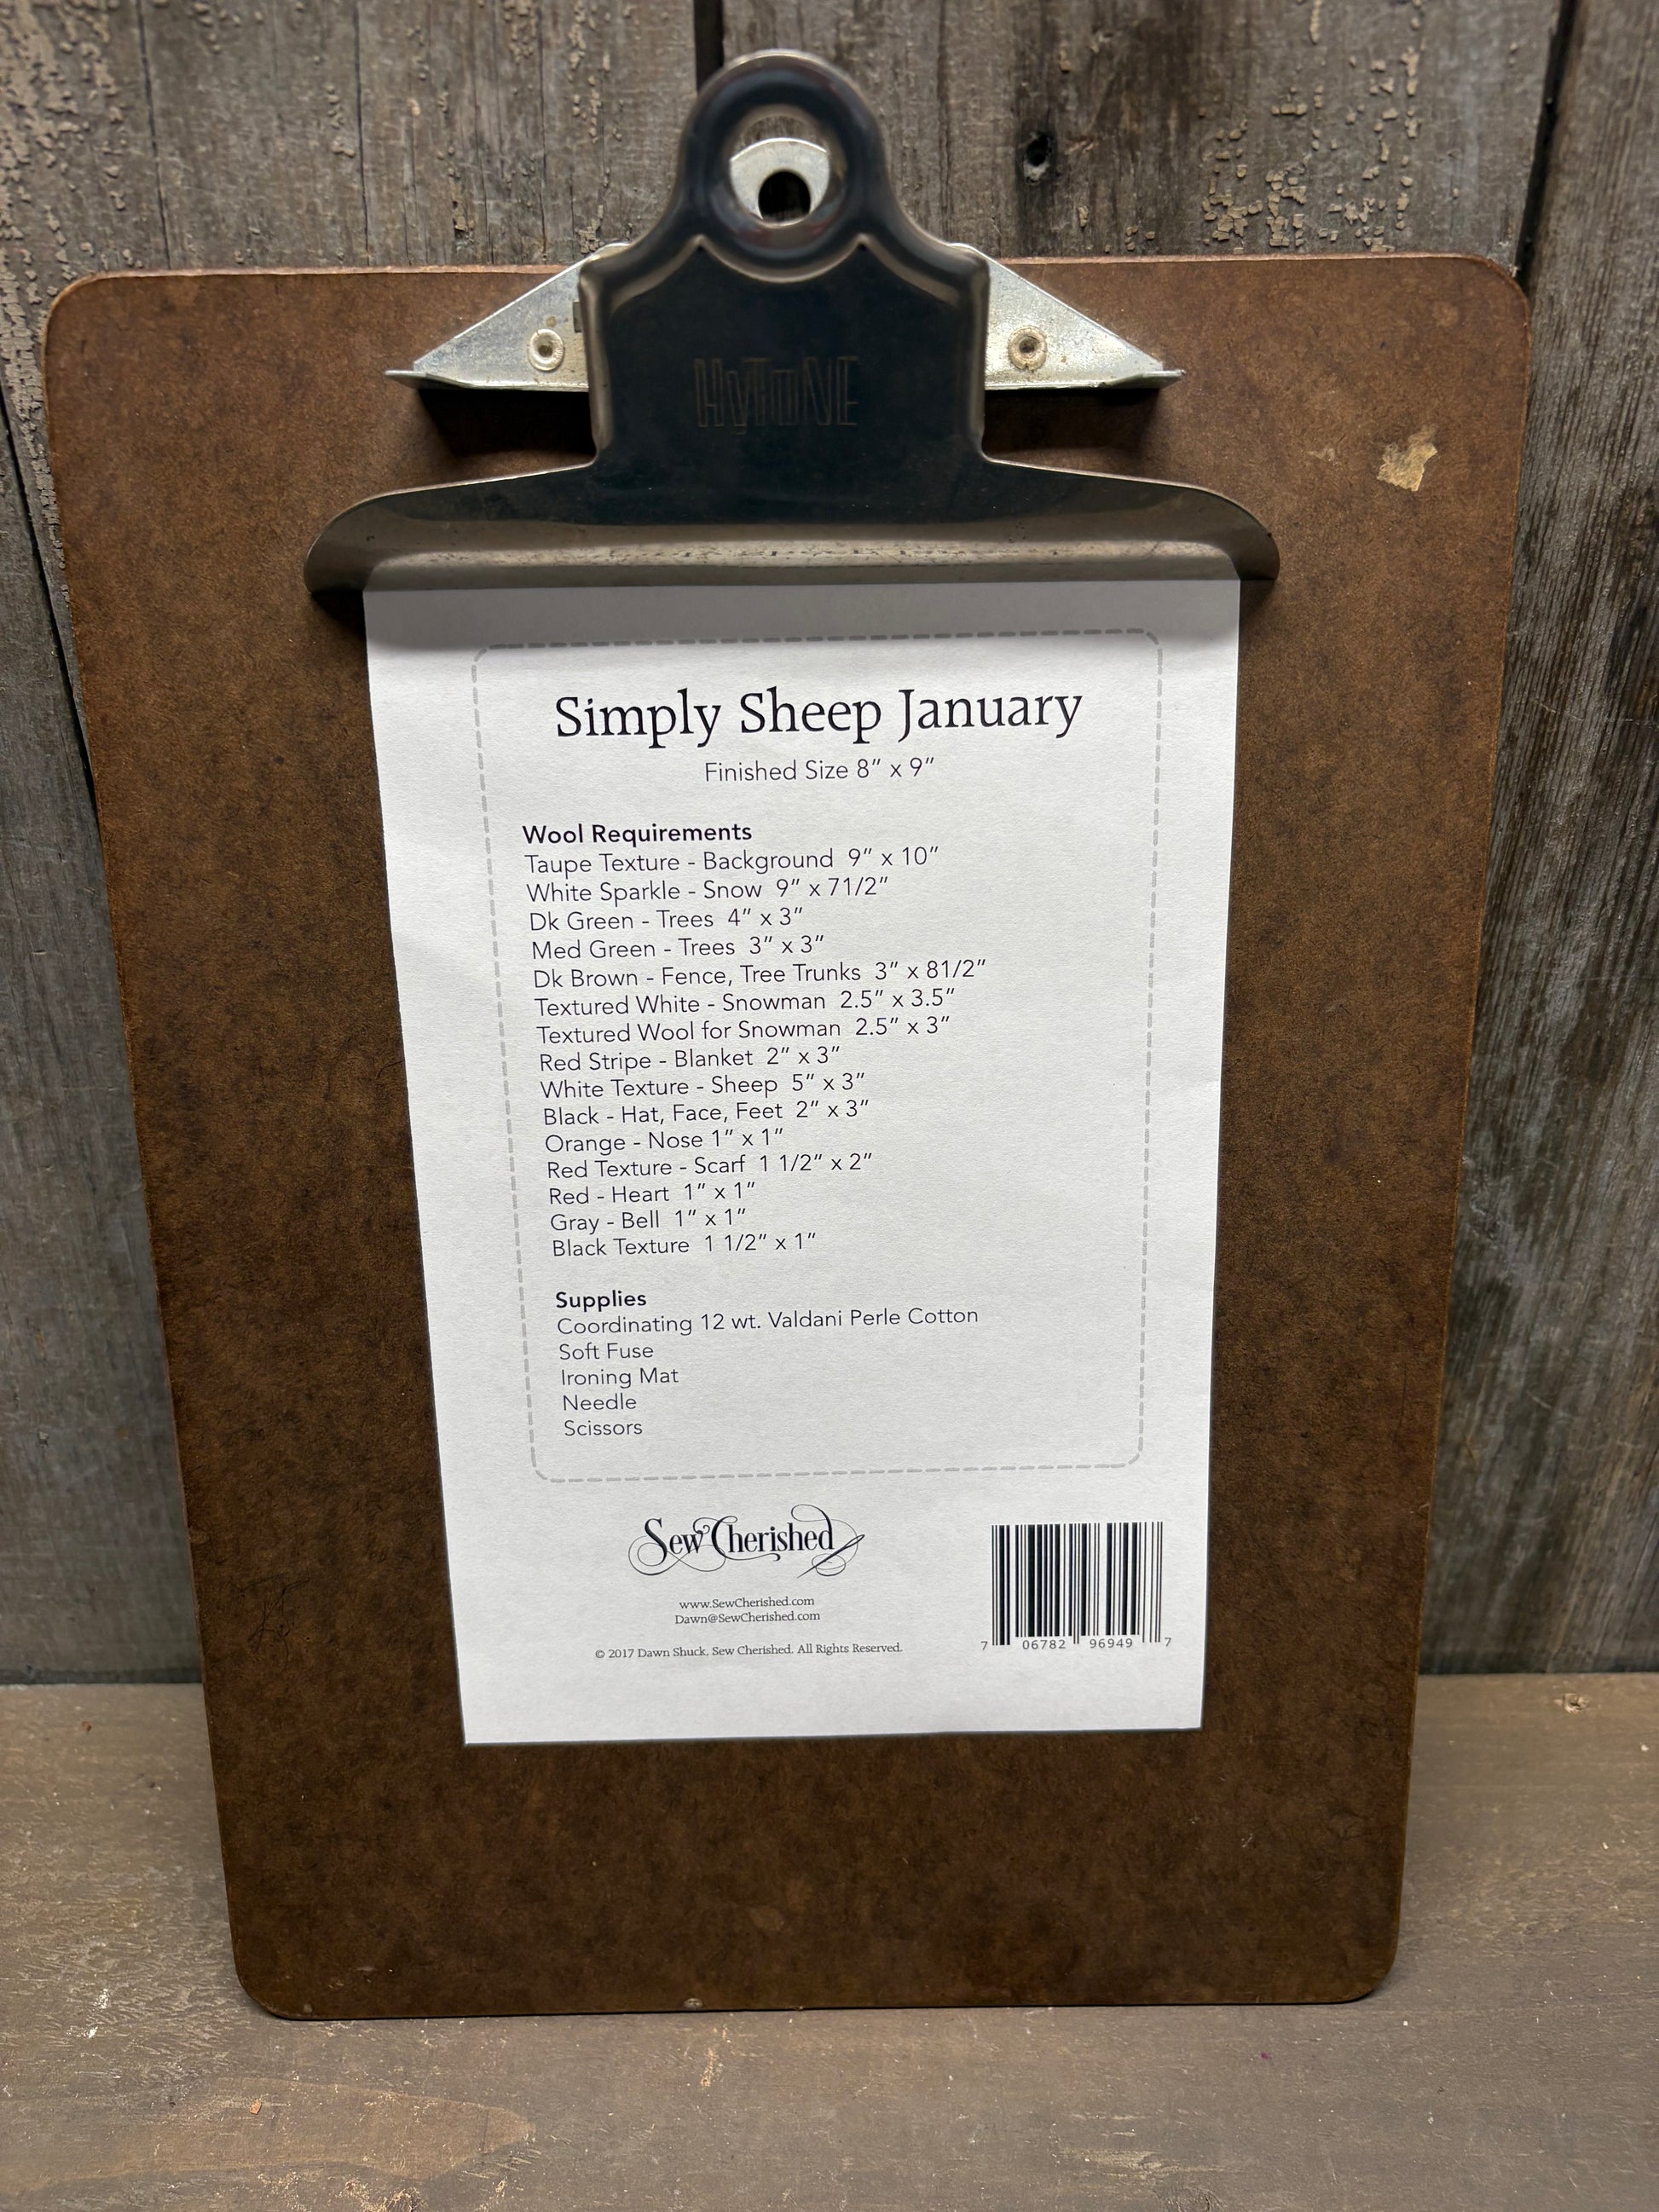 HyTONE
Simply Sheep January
Finished Size 8” x 9”
Wool Requirements
Taupe Texture - Background 9” x 10”
White Sparkle - Snow 9” x 71/2”
Dk Green - Trees 4” x 3”
Med Green - Trees 3” x 3”
Dk Brown - Fence, Tree Trunks 3” x 81/2”
Textured White - Snowman 2.5” x 3.5”
Textured Wool for Snowman 2.5” x 3”
Red Stripe - Blanket 2” x 3”
White Texture - Sheep 5” x 3”
Black - Hat, Face, Feet 2” x 3”
Orange - Nose 1” x 1”
Red Texture - Scarf 1 1/2” x 2”
Red - Heart 1” x 1”
Gray - Bell 1” x 1”
Black Texture 1 1/2” x 1”
Supplies
Coordinating 12 wt. Valdani Perle Cotton
Soft Fuse
Ironing Mat
Needle
Scissors
Sew Cherished
www.SewCherished.com
Dawn@SewCherished.com
© 2017 Dawn Shuck, Sew Cherished. All Rights Reserved.
7 06782 96949 7